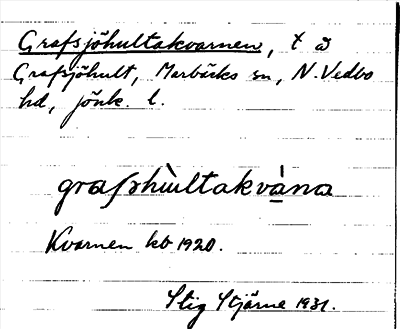 Grafsjöhultakvarnen, t å
Grafsjöhult, Marbäcks sn, N. Vedbo
hd, jönk. l.
grafʂhùltakvàna
Kvarnen kb 1920.
Stig Stjärne 1931.